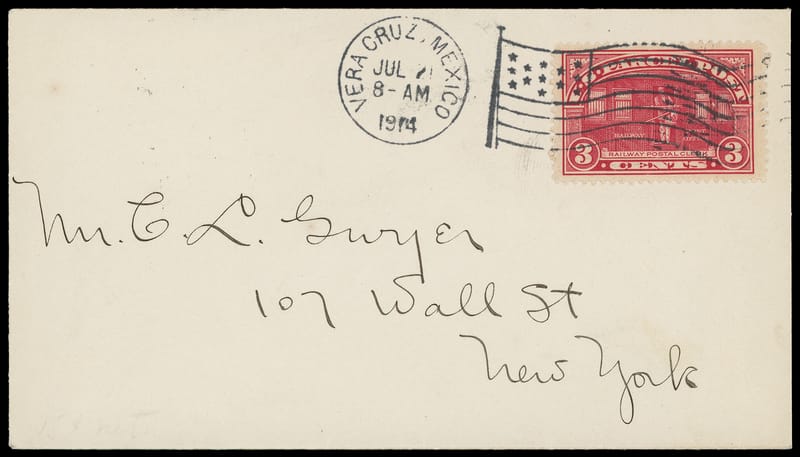 VERA CRUZ, MEXICO
JUL 21
8-AM
1914
U.S. PARCEL POST
RAILWAY POSTAL CLERK
3 CENTS 3
Mr. C. L. Gwyer
107 Wall St
New York